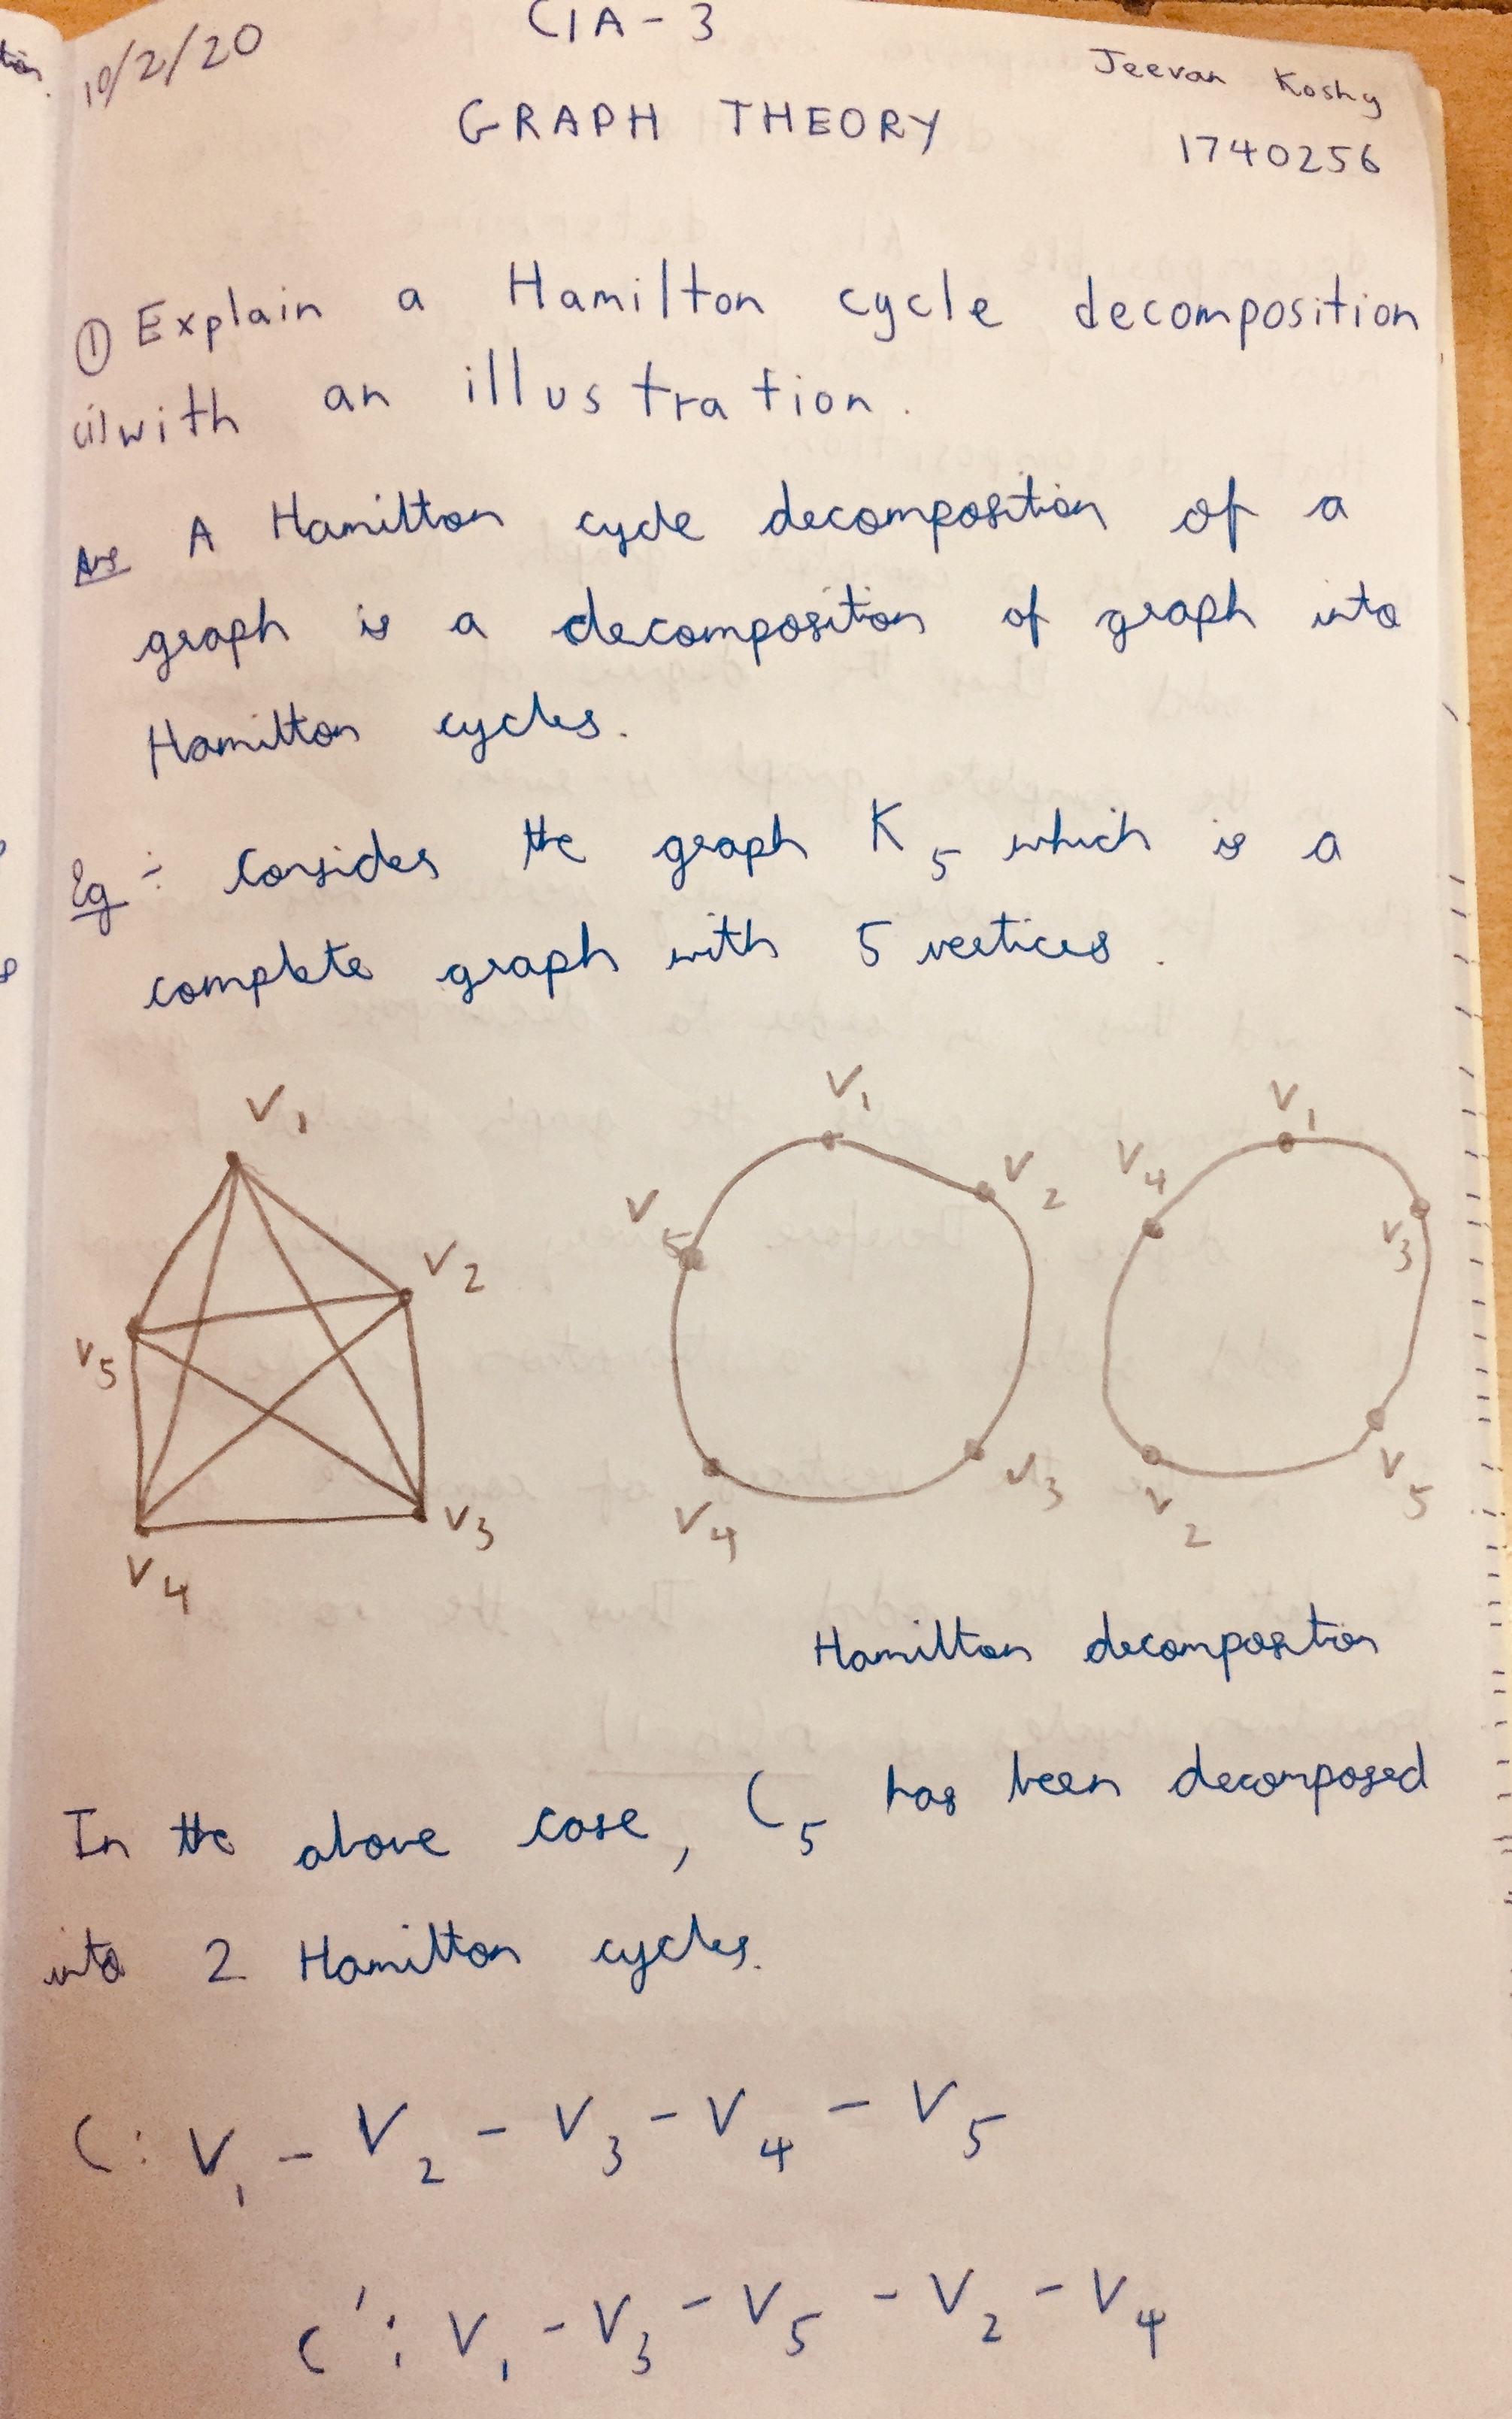 CIA - 3
10/2/20
Jeevan Koshy
GRAPH THEORY
1740256
① Explain a Hamilton cycle decomposition
(i) with an illustration.
Ans A Hamilton cycle decomposition of a
graph is a decomposition of graph into
Hamilton cycles.
Eg :- Consider the graph K5 which is a
complete graph with 5 vertices.
V1
V2
V5
V3
V4
V1
V2
V5
V3
V4
V1
V4
V3
V5
V2
Hamilton decomposition
In the above case, C5 has been decomposed
into 2 Hamilton cycles.
C: V1 - V2 - V3 - V4 - V5
C': V1 - V3 - V5 - V2 - V4